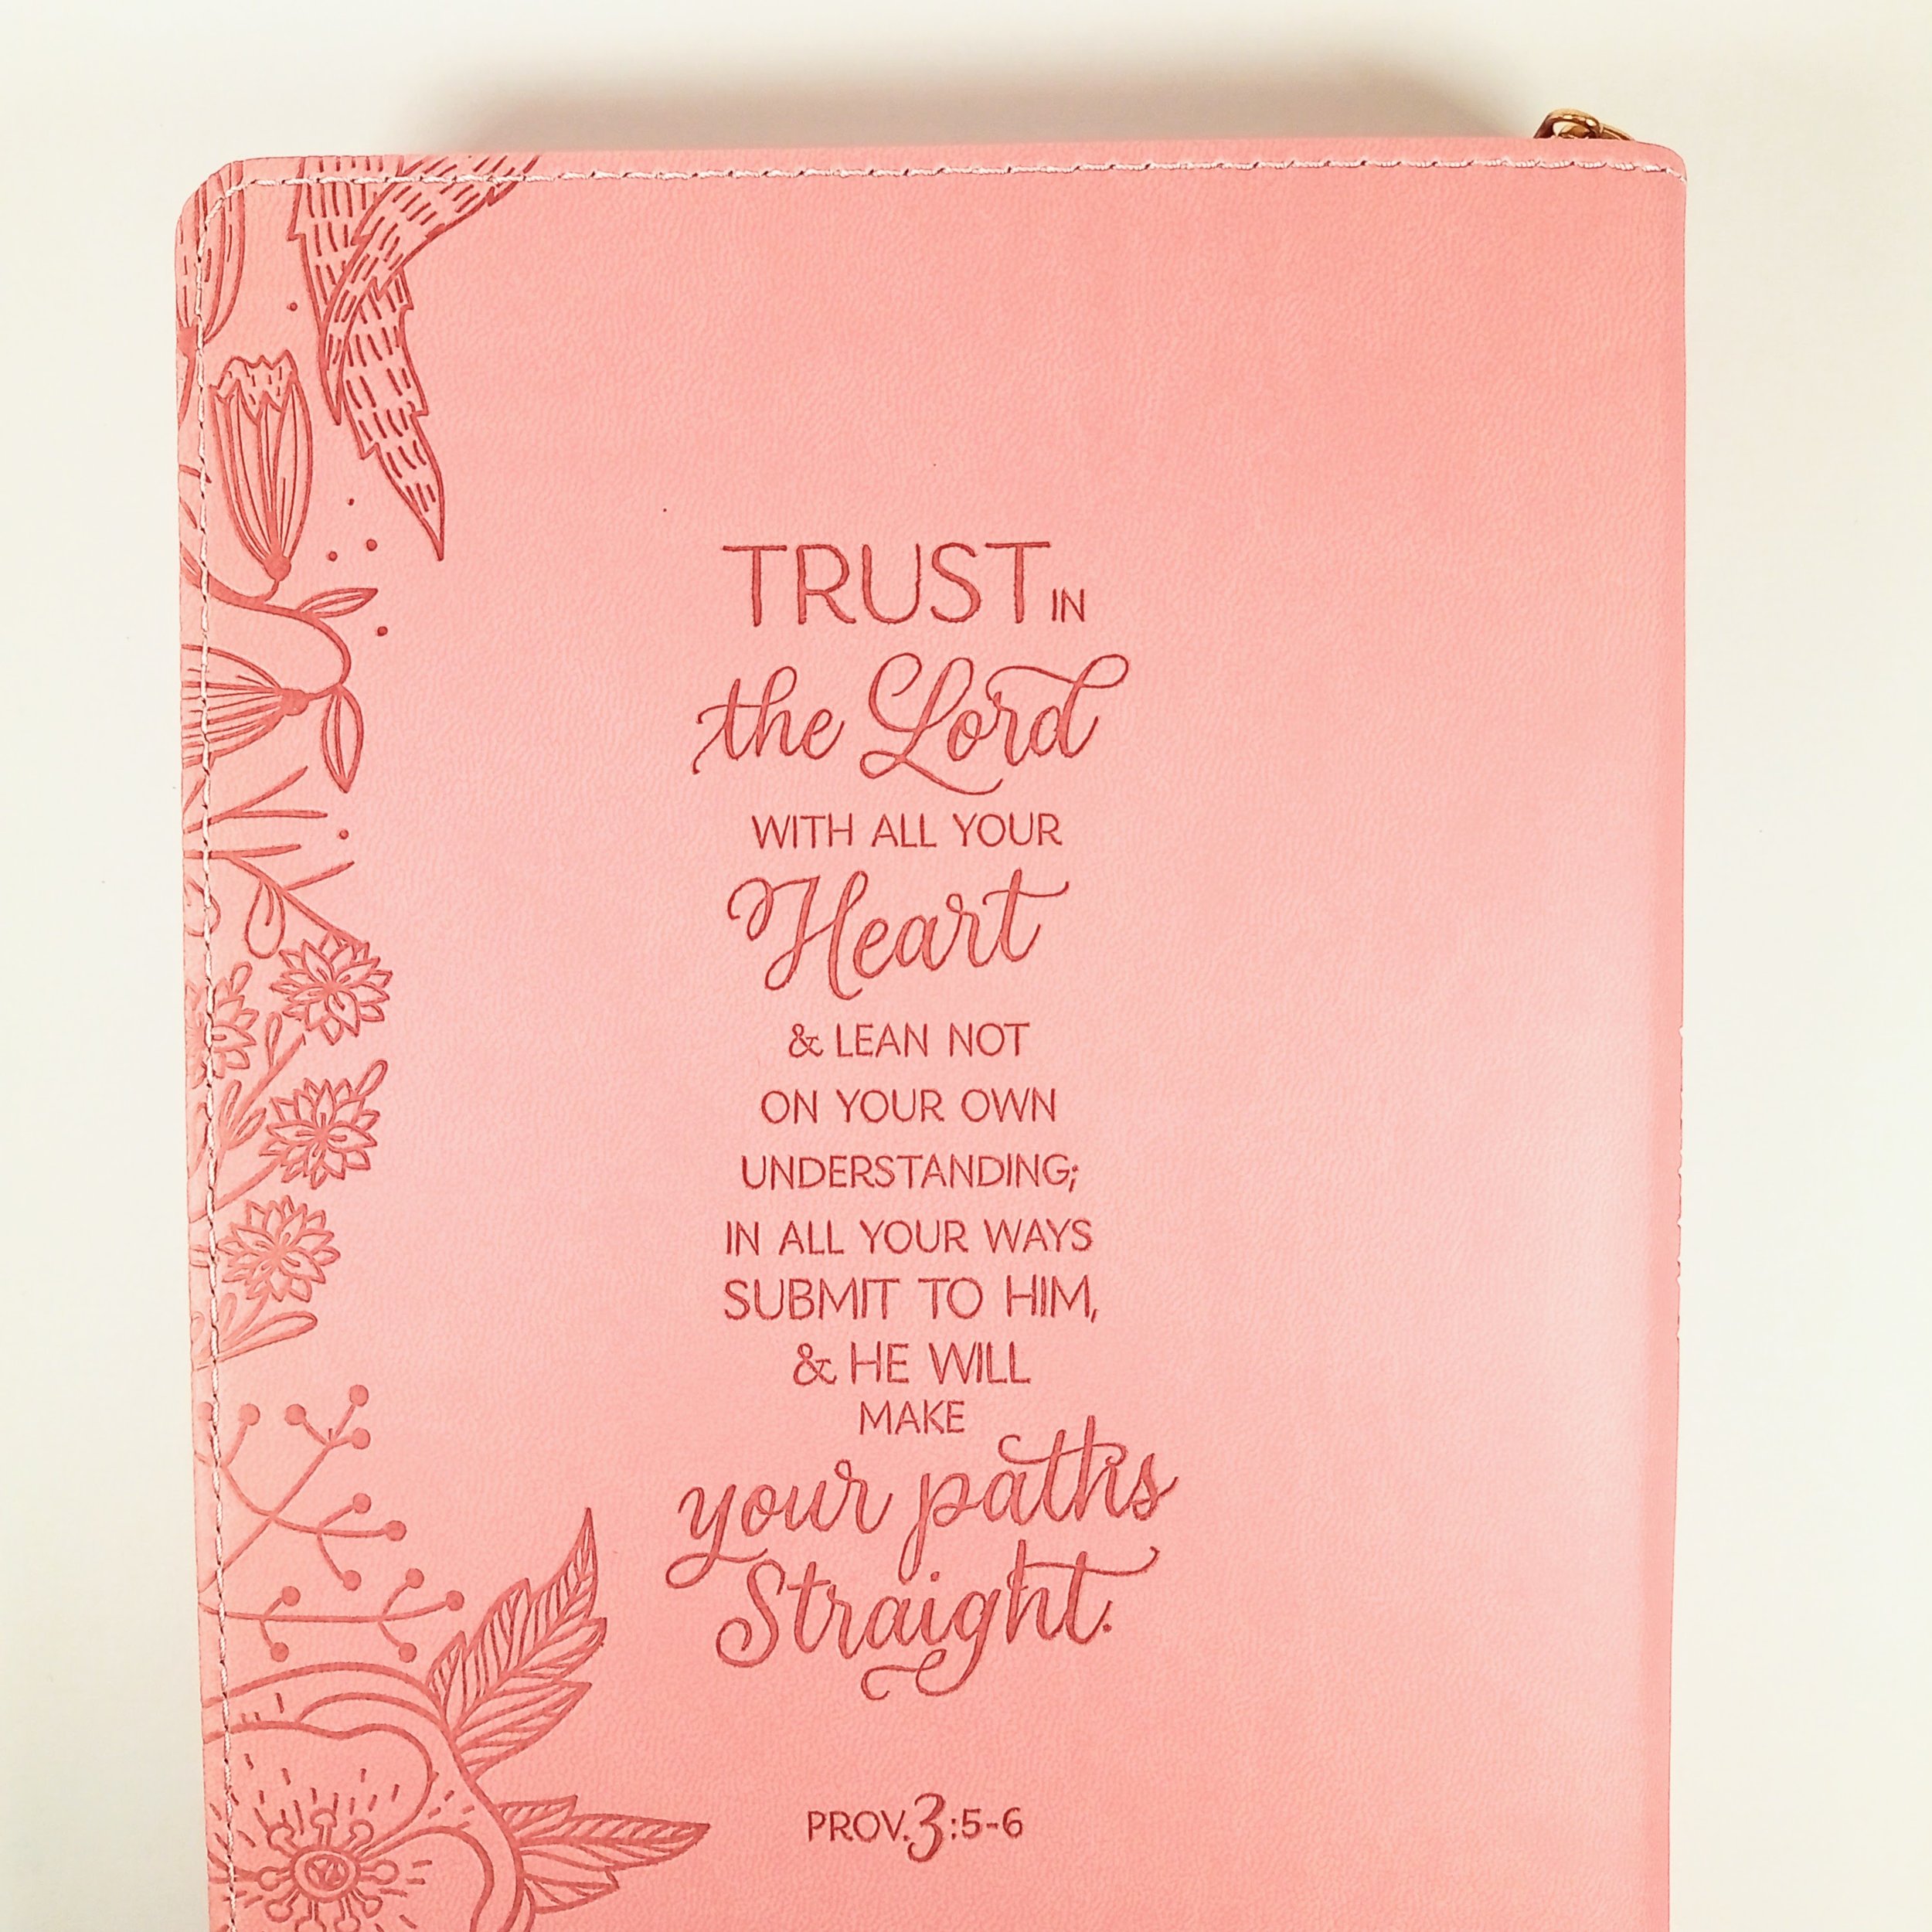 TRUST IN
the Lord
WITH ALL YOUR
Heart
& LEAN NOT
ON YOUR OWN
UNDERSTANDING;
IN ALL YOUR WAYS
SUBMIT TO HIM,
& HE WILL
MAKE
your paths
Straight.
PROV. 3:5-6